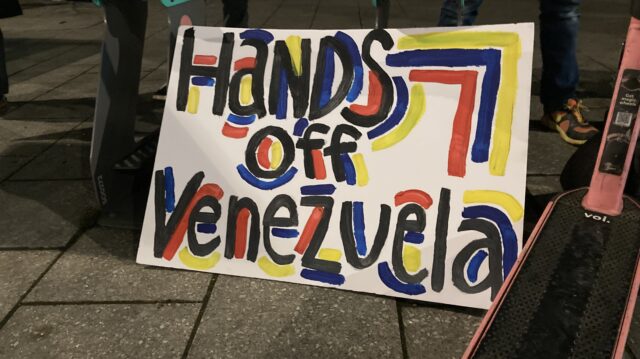 HANDS
Off
Venezuela
voi.